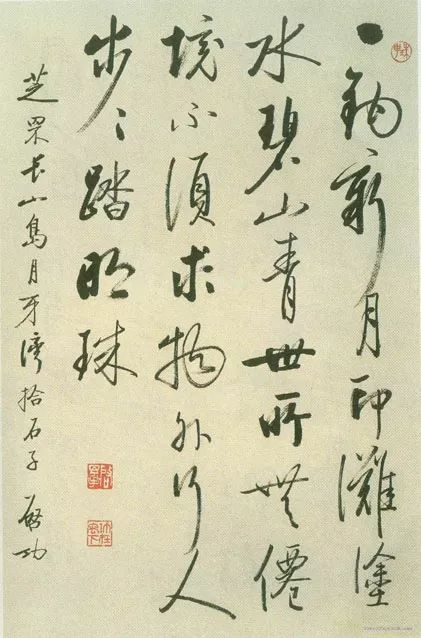 一鈎新月印灘塗
水碧山青世所無僊
境不須求物外行人
步〻踏明珠
芝罘長山島月牙灣拾石子 啓功